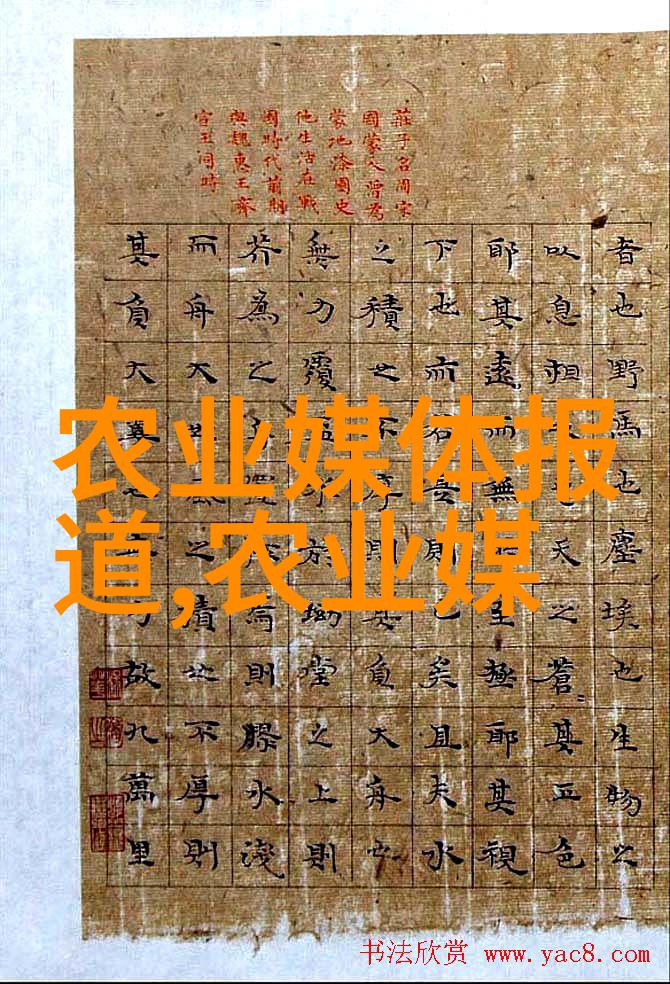 莊子名周宋
國蒙人曾為
蒙地漆園史
他生活在戰
國時代前期
與魏惠王齊
宣王同時
者也野馬也塵埃也生物之
以息相也天之蒼=其正色
耶其遠而無至極耶其視
下也而若則已矣且夫水
之積也不厚則其負大舟也
無力覆於坳堂之上則
芥為之焉則膠水淺
而舟大也風之積也不厚則
其負大翼也力故九萬里
农业媒体报
道,农业媒
书法欣赏 www.yac8.com